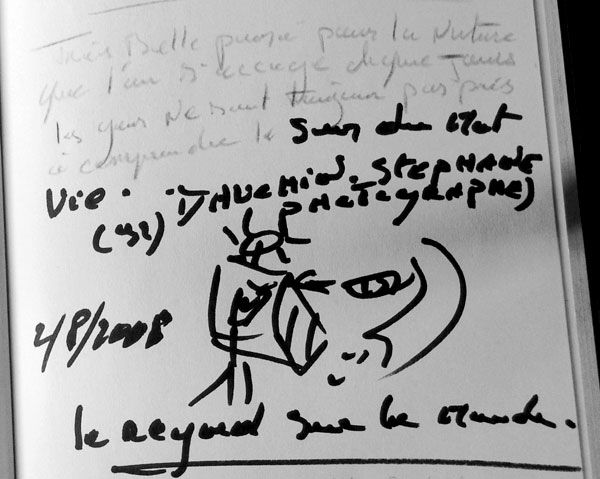 Très Belle pensé pour la Nature
que l'on Saccage chaque Jours
les gens Ne sont toujours pas près
à comprendre le Sens du Mot
Vie. DAVEMIOL. STEPHANE
(32) PHOTOGRAPHE)
2/8/2008
le regard sur le Monde.